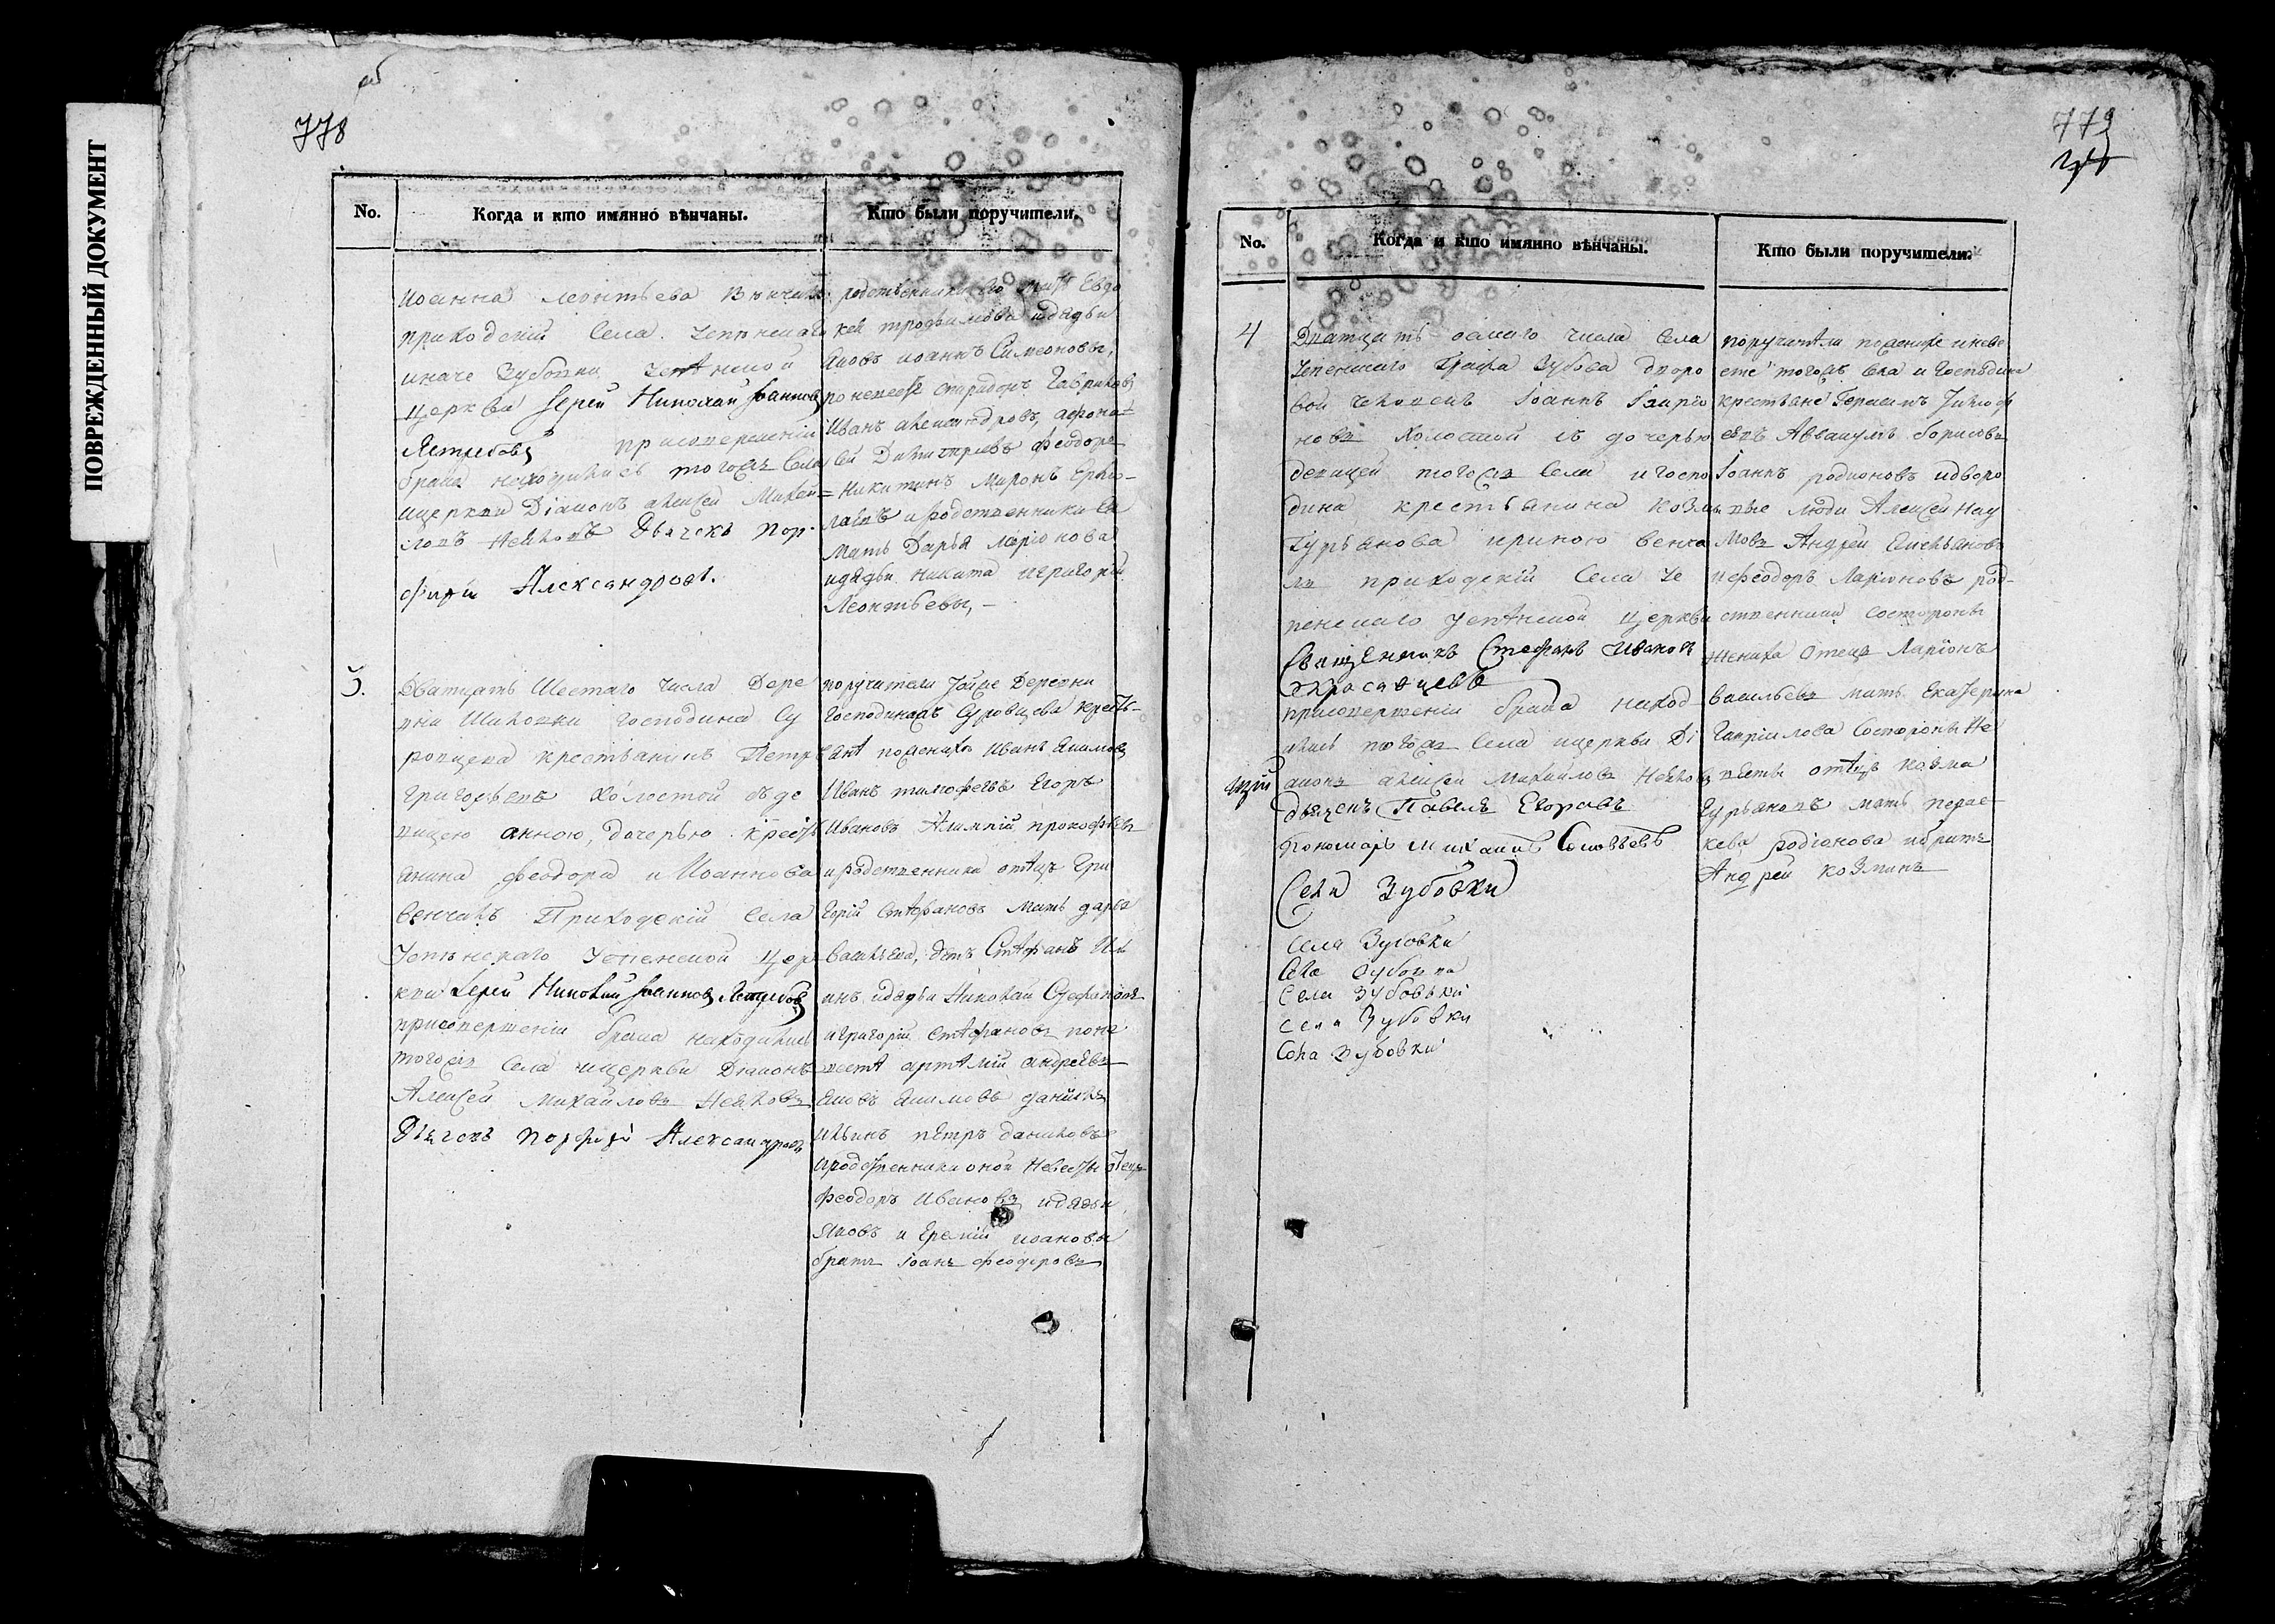 ПОВРЕЖДЕННЫЙ ДОКУМЕНТ
778
No.
Когда и кто имянно вѣнчаны.
Кто были поручители.
иоанна леонтьева
приходскій села
иначе Зубовки
церкви Іерей Николай Іоанновъ
Ястребовъ присовершеніи
брака находились тогожъ села
ицеркви Діаконъ алексей Михай
ловъ Дьячекъ Пор
фирій Александровъ.
родственники его мать Евдо
кея трофимова идядьи
Яковъ иоаннъ Симеоновы,
поневесте спиридонъ Гавриловъ
Иванъ александровъ,
Димитріевъ феодоръ
Никитинъ Миронъ
и родственники ея
мать Дарья
идядьи никита игригорій
Леонтьевы, —
3.
Дватцать Шестаго числа Дере
вни господина Су
ровцева крестьянинъ Петръ
григорьевъ холостой съ де
вицею анною, дочерью крестья
янина феодора Иоаннова
венчалъ Приходскій села
Успенскаго Успенской цер
кви Іерей Николай Іоанновъ Ястребовъ
присовершеніи брака находились
тогожъ села ицеркви Діаконъ
Алексей Михайловъ
Дьячекъ Порфирій Александровъ
поручители Тойже Деревни
Господинажъ Суровцева кресть-
яне поженихе Иванъ Якимовъ
Иванъ тимофеевъ Егоръ
Ивановъ прокофьевъ
иродственники отецъ Гри
горій Стефановъ мать дарья
Стефанъ
идядьи Николай Стефановъ
игригорій Стефановъ поне
весте артемій андреевъ
Яковъ Якимовъ
Ильинъ петръ даниловъ
иродственники оной Невесты отецъ
феодоръ Ивановъ идядьи
Яковъ и иоановы
братъ Іоанъ феодоровъ
779
No.
Когда и кто имянно вѣнчаны.
Кто были поручители.
4
Дватцать осьмаго числа села
Успенскаго Графа Зубова дворо
вой человекъ Іоаннъ Ларіо
новъ холостой съ дочерью
девицей тогожъ села и госпо
дина крестьянина козмы
Гурьянова ириною венча
лъ приходскій села Ус
пенскаго успенской церкви
Священникъ Стефанъ Ивановъ
присовершеніи брака наход
ились тогожъ села ицеркви Ді
аконъ алексей Михайловъ
дьячекъ Павелъ Егоровъ
Пономарь Михаилъ Соловьевъ
Села Зубовки
Села Зубовки
Села Зубовки
Села Зубовки
Села Зубовки
Села Зубовки
поручители поженихе иневе
сте тогожъ села и господина
крестьяне Герасимъ Тимоф
еевъ Аввакумъ борисовъ
Іоаннъ родионовъ идворо
вые люди Алексей Нау
мовъ Андрей Емельяновъ
ифеодоръ Ларіоновъ род-
ственники состороны
жениха отецъ Ларіонъ
васильевъ мать Екатерина
Гавріилова Состороны Не
весты отецъ козма
Гурьяновъ мать парас-
кева родіонова ибратъ
Андрей козминъ